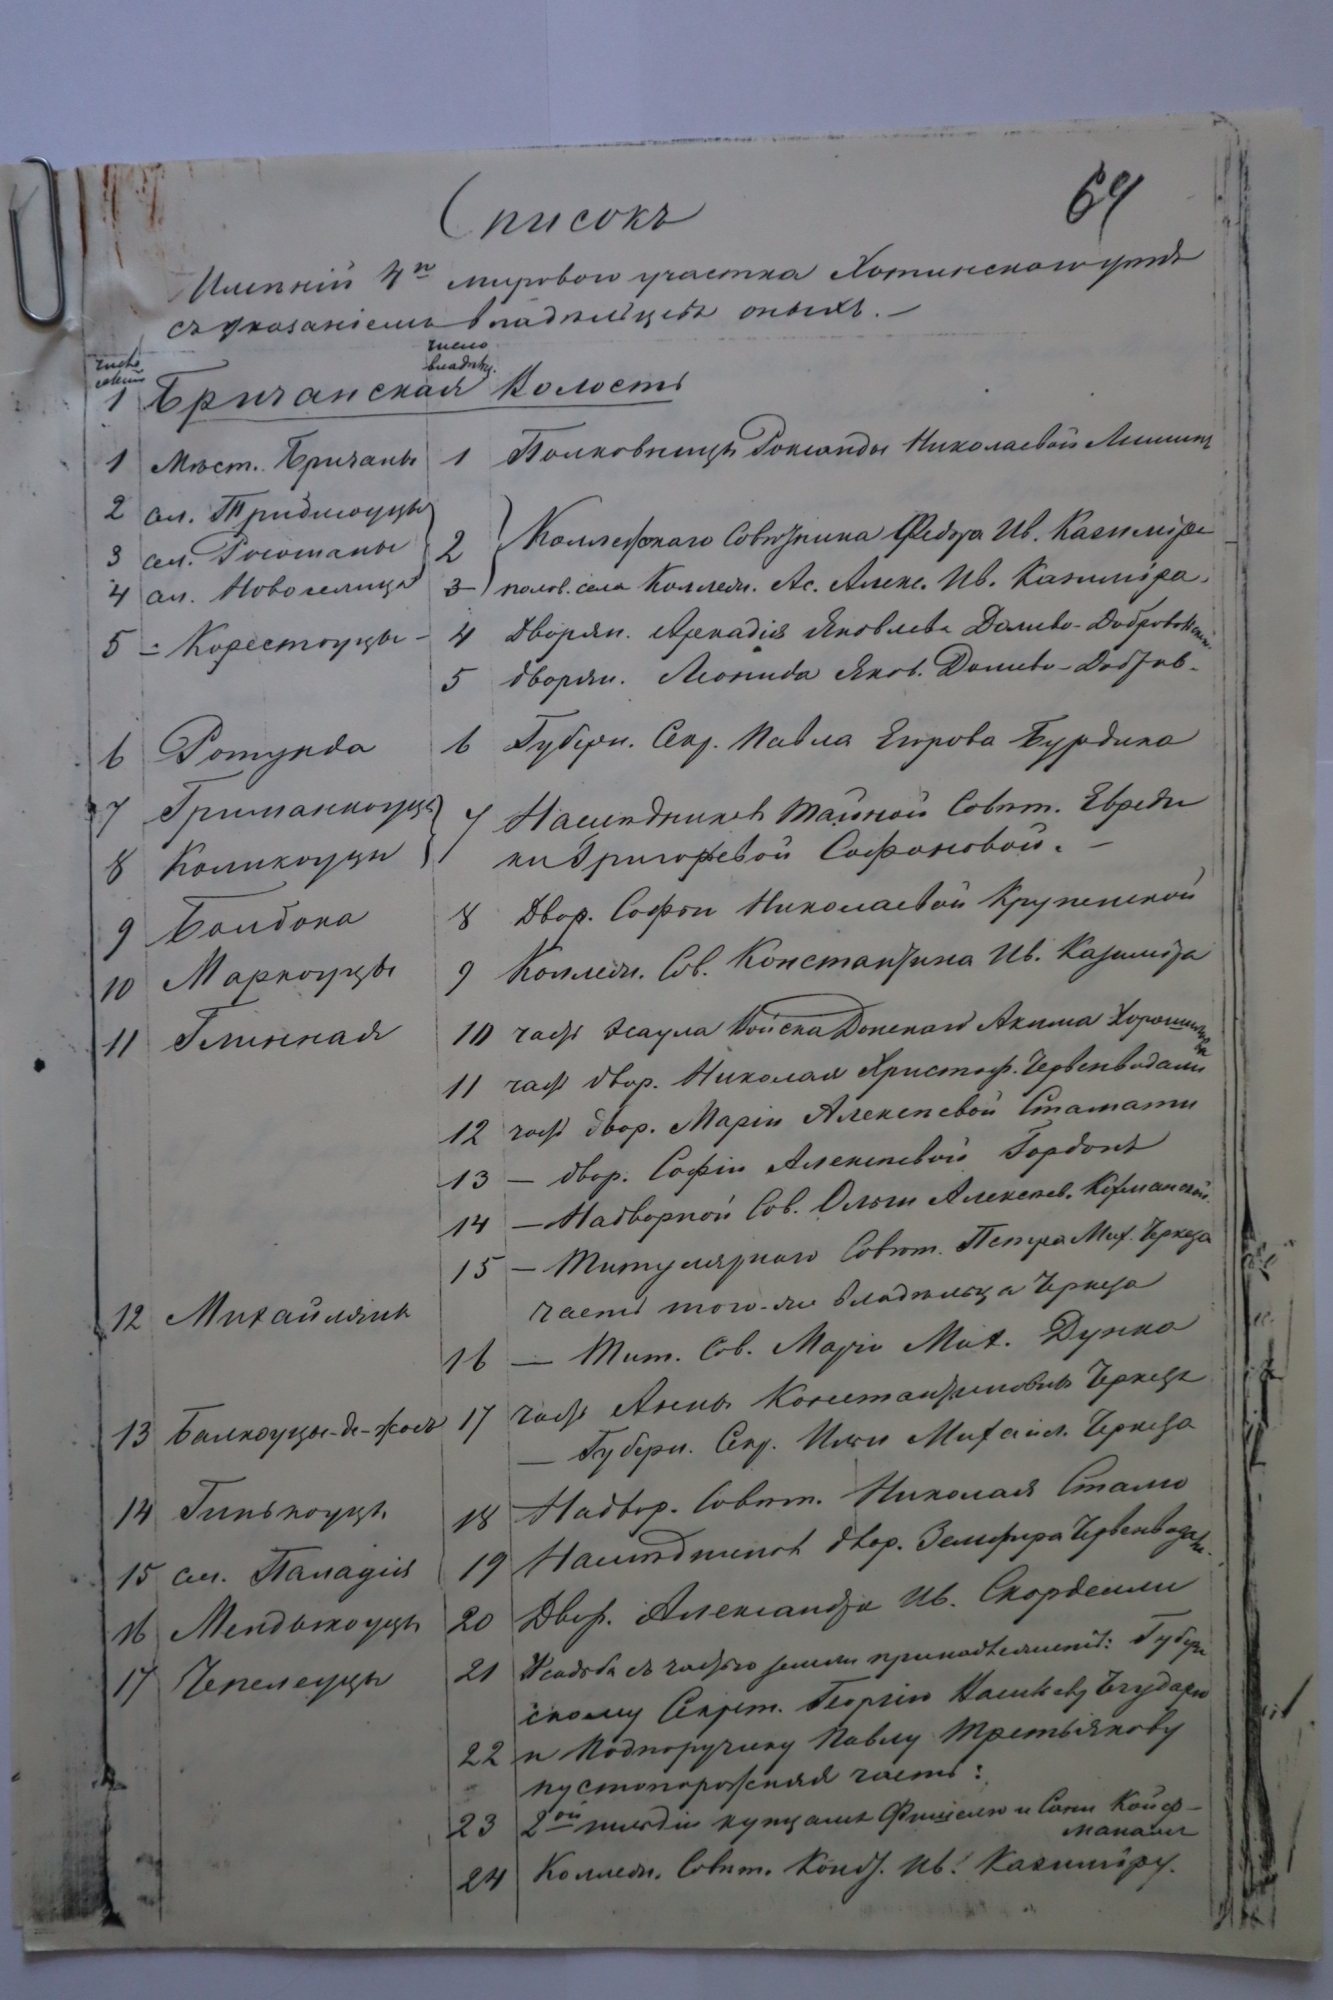 64
Списокъ
Имѣній 4го мироваго участка Хотинскаго уѣзда
съ указаніемъ владѣльцевъ оныхъ. —
число число владѣл.
1 Бричанская Волость
1 Мѣст. Бричаны 1 Полковницы Роксанды Николаевой
2 сел. 2 Коллежскаго Совѣтника Федора Ив. Казиміра
3 сел. Росошаны
4 сел. Новоселица 3 полов. села Коллежс. Ас. Алекс. Ив. Казиміра.
5 – Корестоуцы – 4 Дворян. Аркадія Яковлева Долива-Добровольск.
5 дворян. Леонида Яков. Долива-Добров-
6 Ротунда 6 Губерн. Секр. Павла Егорова Бурдика
7 Гриманкоуцы 7 Наслѣдниковъ Тайной Совѣт. Евреди
8 Коликоуцы ки Григорьевой Сафоновой. —
9 Болбока 8 Двор. Софіи Николаевой Крупенской
10 Маркоуцы 9 Коллежс. Сов. Константина Ив. Казиміра
11 Глинная 10 часть Эсаула Войска Донскаго Акима
11 часть двор. Николая Христоф. Червенводали
12 часть двор. Маріи Алексѣевой Стамати
13 — двор. Софіи Алексѣевой Гордонъ
14 — Надворной Сов. Ольги Алексѣев.
15 — Титулярнаго Совѣт. Петра Мих. Черкеза
12 Михайляны часть того-же владѣльца Черкеза
16 — Тит. Сов. Маріи Мих. Дунка
13 Балкоуцы-де-жосъ 17 часть Анны Константиновны Черкезъ
— Губерн. Секр. Ильи Михайл. Черкеза
14 Гинькоуцы 18 Надвор. Совѣт. Николая Стамо
15 сел. Паладія 19 Наслѣдниковъ двор. Земфира Червенводали.
16 Мендыкоуцы 20 Двор. Александра Ив. Скордели
17 Чепелеуцы 21 Усадьба съ частью земли принадлежитъ: Губерн
скому Секрет. Георгію
22 и Подпоручику Павлу Третьякову
пустопорожняя часть:
23 2ой гильдіи купцамъ Фишелю и Сани Койф-
манамъ
24 Коллежс. Совѣт. Конст. Ив. Казиміру.